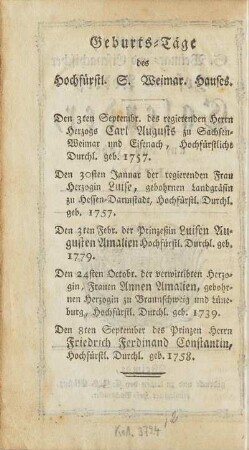 Geburts-Täge
des
Hochfürstl. S. Weimar. Hauses.
Den 3ten Septembr. des regierenden Herrn
Herzogs Carl Augusts zu Sachsen-
Weimar und Eisenach, Hochfürstlichs
Durchl. geb. 1757.
Den 30sten Januar der regierenden Frau
Herzogin Luise, gebohrnen Landgräfin
zu Hessen-Darmstadt, Hochfürstl. Durchl.
geb. 1757.
Den 3ten Febr. der Prinzeßin Luisen Au-
gusten Amalien Hochfürstl. Durchl. geb.
1779.
Den 24sten Octobr. der verwittibten Herzo-
gin, Frauen Annen Amalien, gebohr-
nen Herzogin zu Braunschweig und Lüne-
burg, Hochfürstl. Durchl. geb. 1739.
Den 8ten September des Prinzen Herrn
Friedrich Ferdinand Constantin,
Hochfürstl. Durchl. geb. 1758.